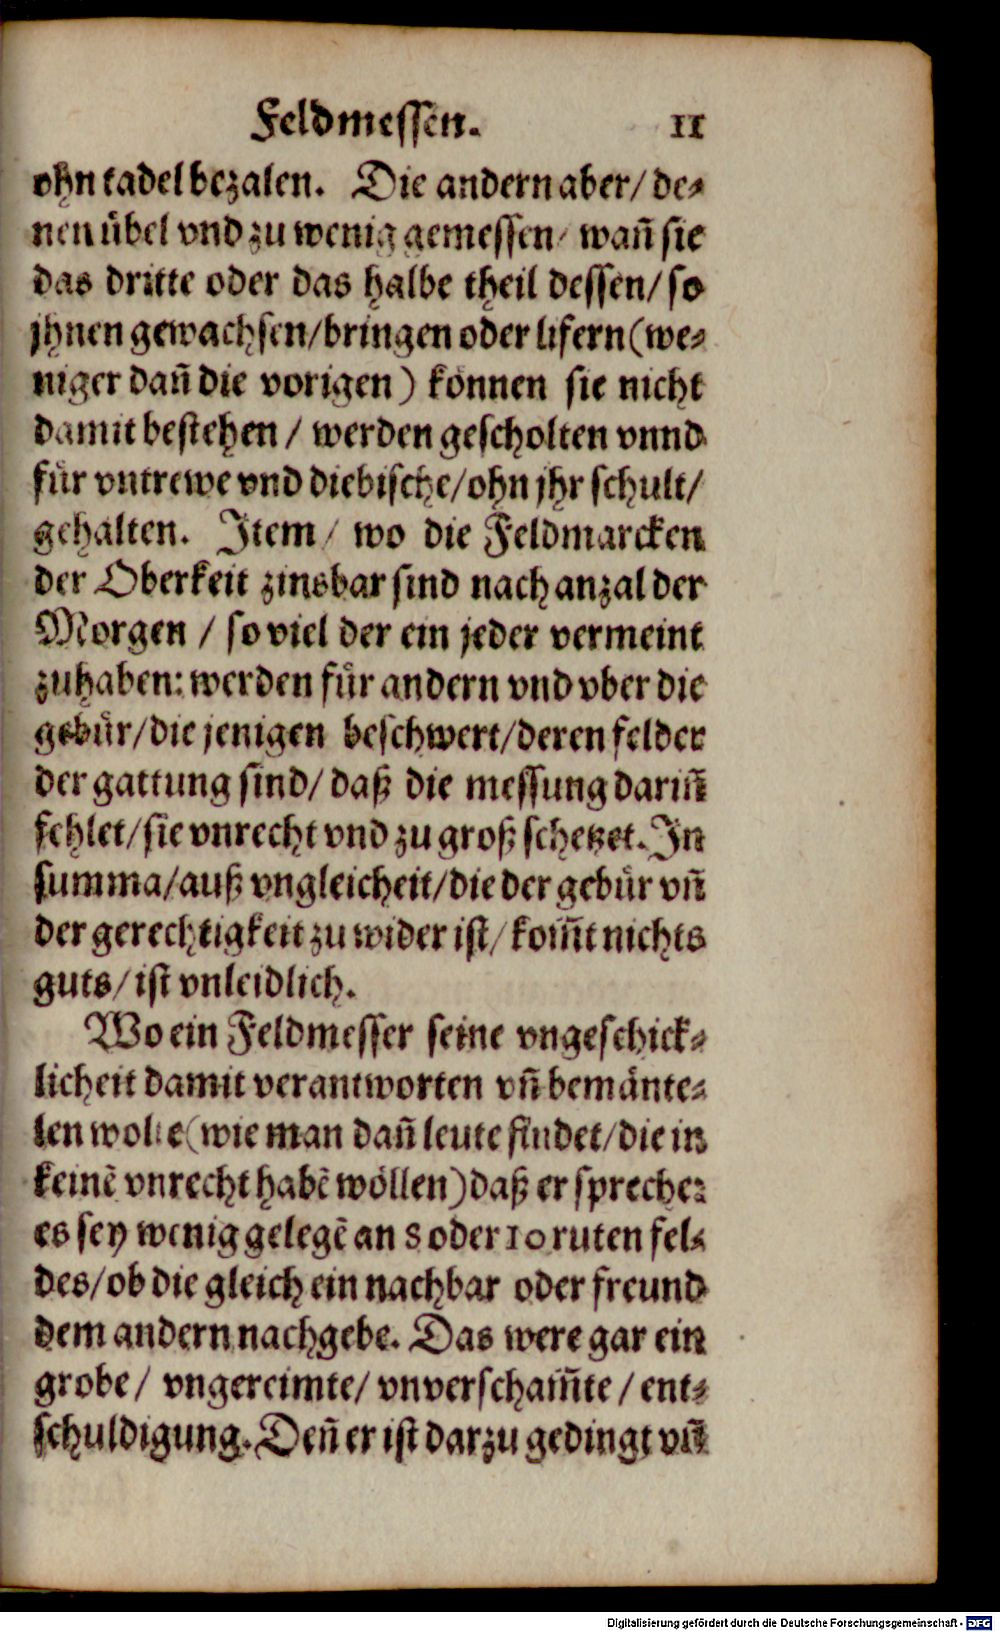 Feldmessen. 11
ohn tadel bezalen. Die andern aber/ de-
nen übel vnd zu wenig gemessen/ wañ sie
das dritte oder das halbe theil dessen/ so
jhnen gewachsen/bringen oder lifern (we-
niger dañ die vorigen) können sie nicht
damit bestehen / werden gescholten vnnd
für vntrewe vnd diebische/ohn jhr schult/
gehalten. Item/ wo die Feldmarcken
der Oberkeit zinsbar sind nach anzal der
Morgen / so viel der ein jeder vermeint
zuhaben: werden für andern vnd vber die
gebür/die jenigen beschwert/deren felder
der gattung sind/ daß die messung dariñ
fehlet/sie vnrecht vnd zu groß schetzet. In
summa/auß vngleicheit/die der gebür vñ
der gerechtigkeit zu wider ist/ kom̃t nichts
guts/ist vnleidlich.
Wo ein Feldmesser seine vngeschick-
licheit damit verantworten vñ bemänte-
len wolte (wie man dañ leute findet/die in
keinẽ vnrecht habẽ wöllen) daß er spreche:
es sey wenig gelegẽ an 8 oder 10 ruten fel-
des/ob die gleich ein nachbar oder freund
dem andern nachgebe. Das were gar ein
grobe/ vngereimte/ vnverscham̃te / ent-
schuldigung. Deñ er ist darzu gedingt vñ
Digitalisierung gefördert durch die Deutsche Forschungsgemeinschaft - DFG